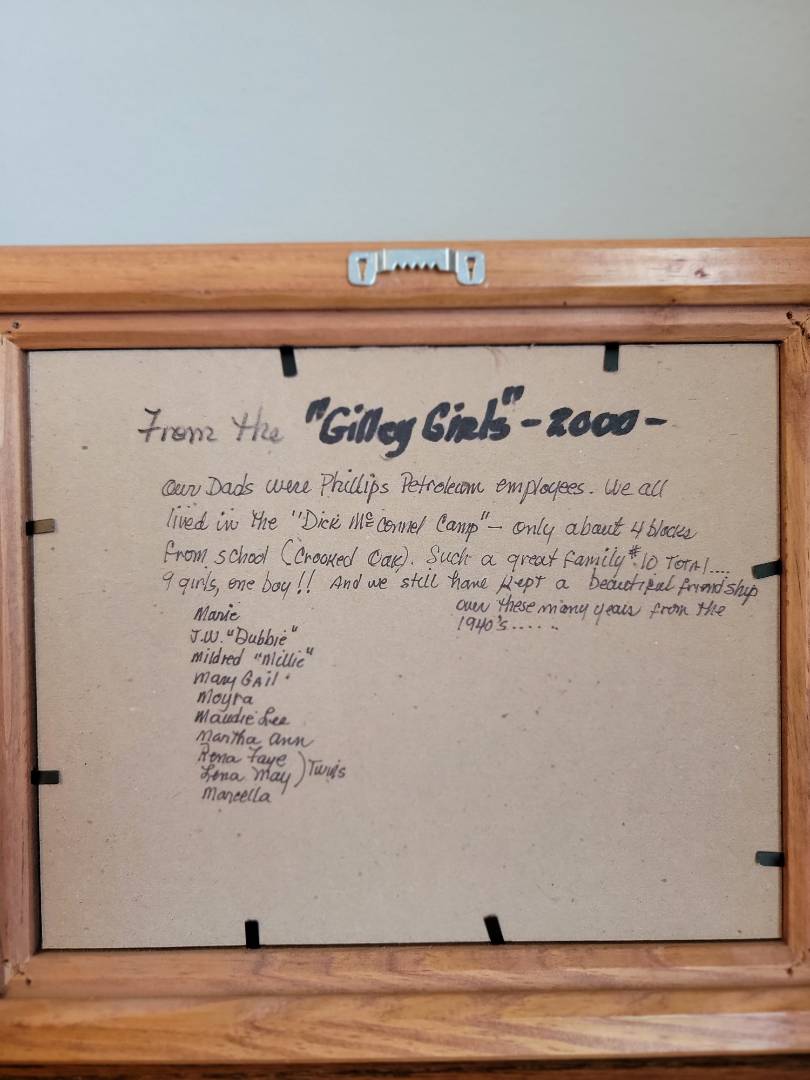 From the "Gilley Girls" - 2000 -
our Dads were Phillips Petroleum employees. We all
lived in the "Dick McConnel Camp" - only about 4 blocks
from school (Crooked Oak). Such a great family # 10 TOTAL....
9 girls, one boy!! And we still have kept a beautiful friendship
over these many years from the
1940's......
Marie
J.W. "Bubbie"
Mildred "Millie"
Mary Gail
Moyra
Maudie Lee
Martha Ann
Rena Faye
Lena May ) Twins
Marcella